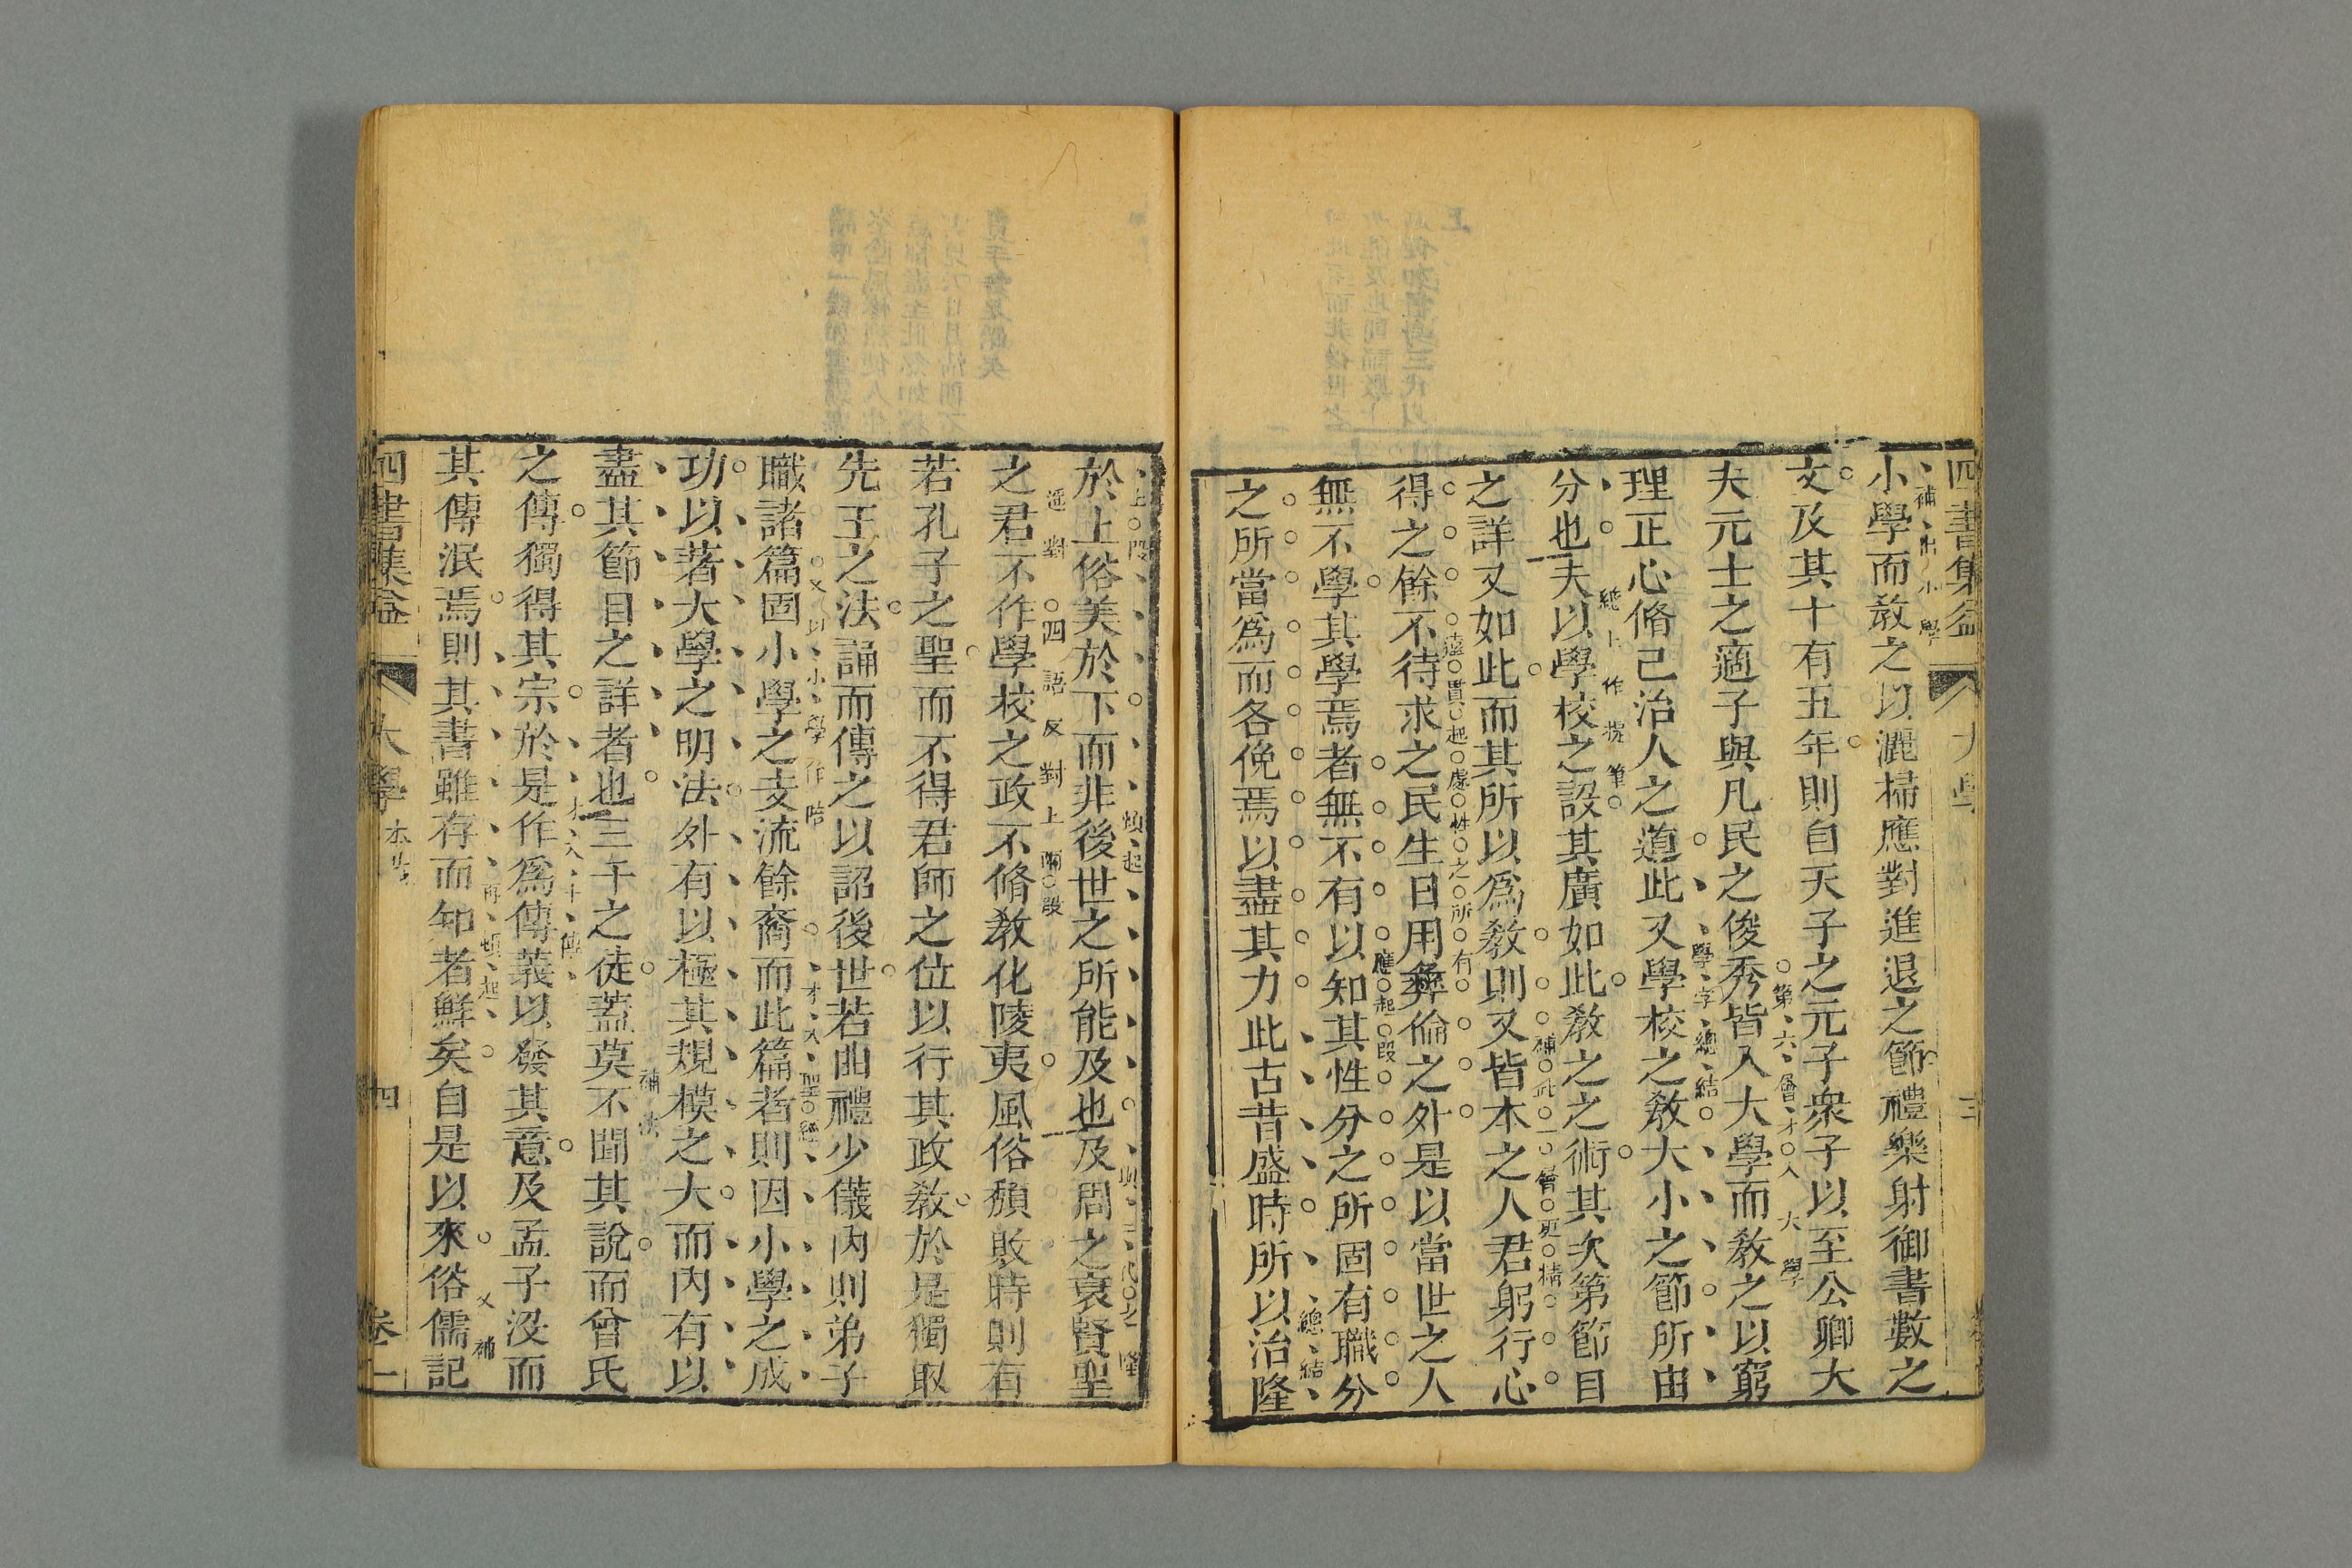 四書集益 大學 三
小學而教之以灑掃應對進退之節禮樂射御書數之
補出小學
文及其十有五年則自天子之元子衆子以至公卿大
夫元士之適子與凡民之俊秀皆入大學而教之以窮
第六層才入大學
理正心脩己治人之道此又學校之教大小之節所由
學字總結
分也夫以學校之設其廣如此教之之術其次第節目
總上作襯筆
之詳又如此而其所以爲教則又皆本之人君躬行心
補此一層更精
得之餘不待求之民生日用彞倫之外是以當世之人
遠貫起處性之所有
無不學其學焉者無不有以知其性分之所固有職分
應起段
之所當爲而各俛焉以盡其力此古昔盛時所以治隆
總結
於上俗美於下而非後世之所能及也及周之衰賢聖
上段 頓起 三代之隆
之君不作學校之政不脩教化陵夷風俗頹敗時則有
遥對 四語反對上兩段
若孔子之聖而不得君師之位以行其政教於是獨取
先王之法誦而傳之以詔後世若曲禮少儀内則弟子
職諸篇固小學之支流餘裔而此篇者則因小學之成
又以小學作陪 才入聖經
功以著大學之明法外有以極其規模之大而内有以
盡其節目之詳者也三千之徒蓋莫不聞其說而曾氏
之傳獨得其宗於是作爲傳義以發其意及孟子没而
才入十傳
其傳泯焉則其書雖存而知者鮮矣自是以來俗儒記
再頓起 又補
四書集益 大學 四 卷一